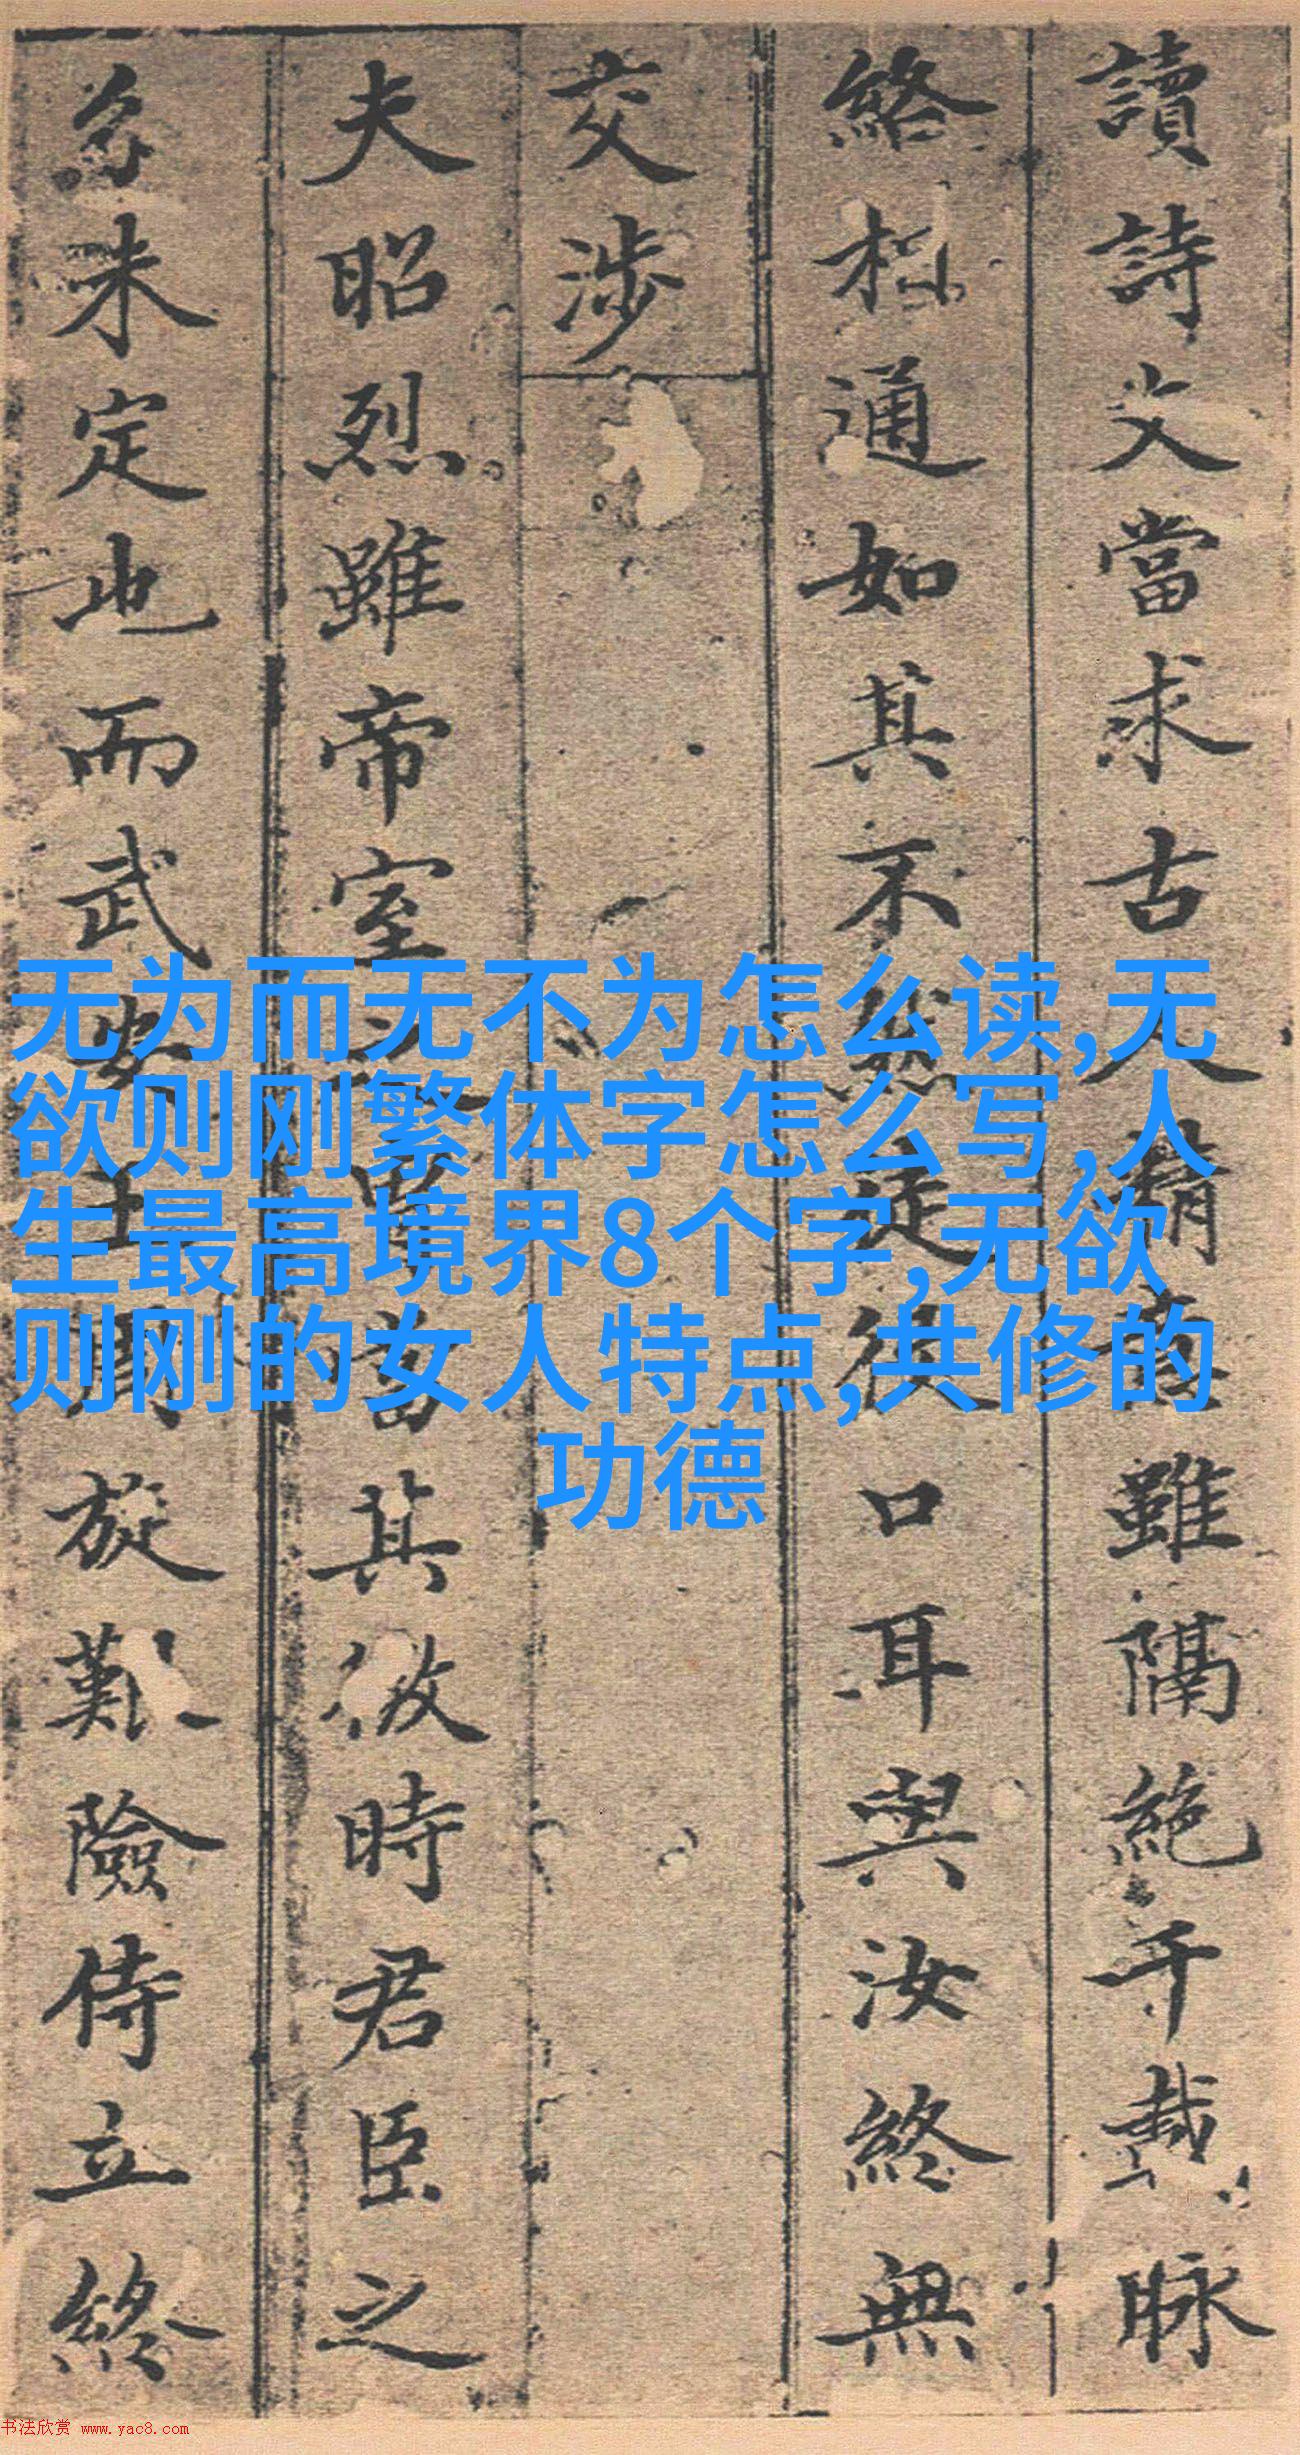 讀詩文當求古人精神雖隔絶千載脉
絡相通如其不然徒從口耳與汝終無
交涉
夫昭烈雖帝室之胄當其微時君臣之
分未定也而武安王周旋艱險侍立終
无为而无不为怎么读,无
欲则刚繁体字怎么写,人
生最高境界8个字,无欲
则刚的女人特点,共修的
功德
书法欣赏 www.yac8.com